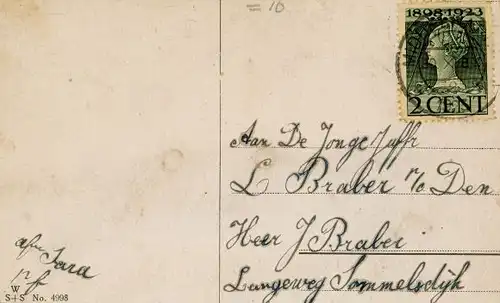 = 10
1898-1923
2 CENT
Aan De Jonge Juffr
L Braber p/o Den
Heer J Braber
Langeweg Sommelsdijk
Sara
pf
W
S+S No. 4998